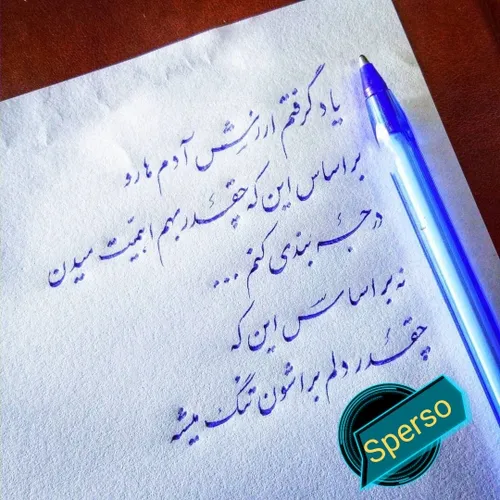 یاد گرفتم ارزش آدم هارو
بر اساس این که چقدر بهم اهمیّت میدن
درجه بندی کنم ...
نه بر اساس این که
چقدر دلم براشون تنگ میشه
Sperso